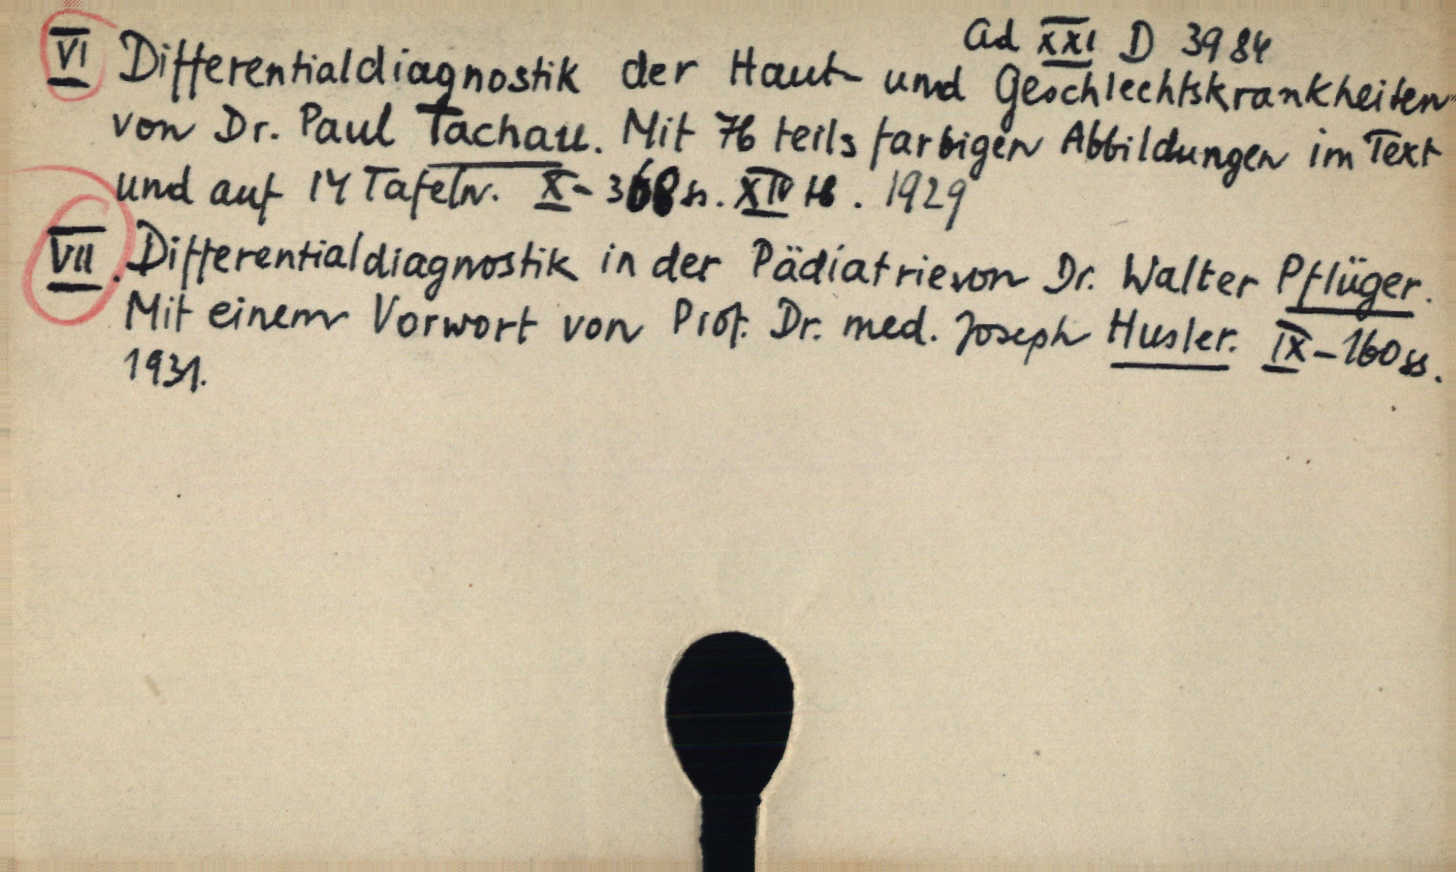 Ad XXI D 3984
VI Differentialdiagnostik der Haut- und Geschlechtskrankheiten
von Dr. Paul Tachau. Mit 76 teils farbigen Abbildungen im Text
und auf 14 Tafeln. X-368 ss. XIV tb. 1929
VII. Differentialdiagnostik in der Pädiatrie von Dr. Walter Pflüger.
Mit einem Vorwort von Prof. Dr. med. Joseph Husler. IX-160 ss.
1931.